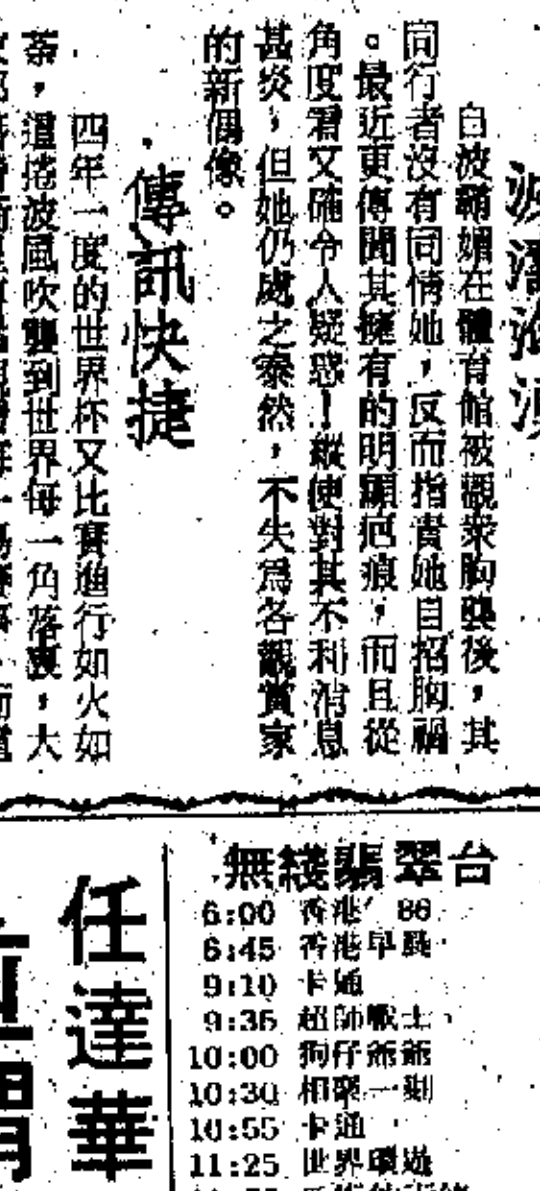 自波霸媚在體育館被觀衆胸襲後，其
同行者沒有同情她，反而指責她自招胸禍
。最近更傳聞其擁有的明顯疤痕，而且從
角度看又確令人疑惑！縱使對其不利消息
甚炎，但她仍處之泰然，不失爲各觀賞家
的新偶像。
傳訊快捷
四年一度的世界杯又比賽進行如火如
荼，這捲波風吹襲到世界每一角落裏，大
無綫翡翠台
6:00 香港' 86
6:45 香港早晨
9:10 卡通
9:35 超師戰士
10:00 狗仔爺爺
10:30 相聚一刻
10:55 卡通
11:25 世界環遊
任達華